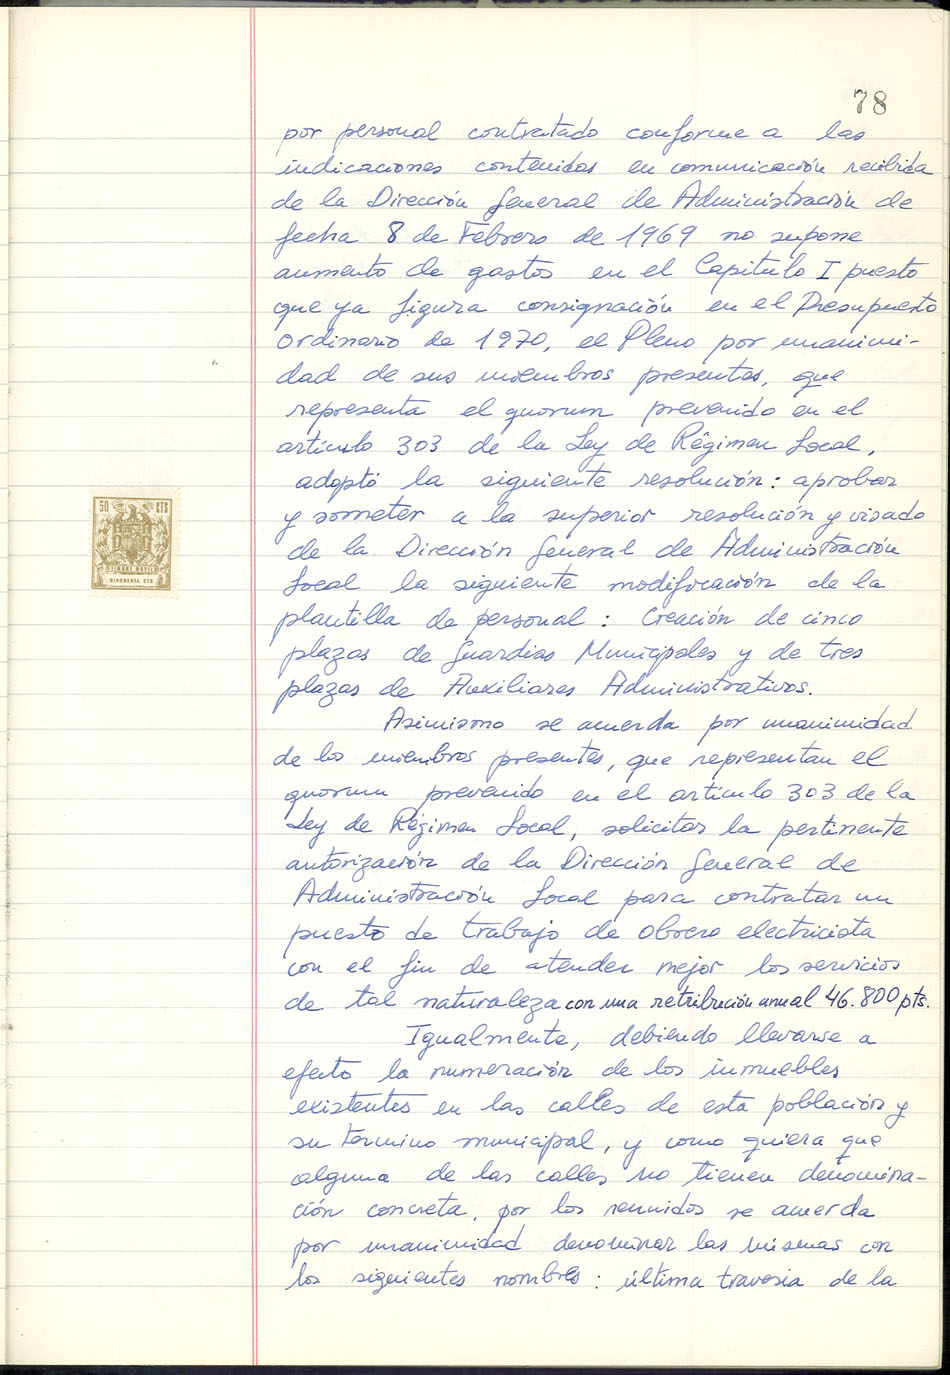 78
por personal contratado conforme a las
indicaciones contenidas en comunicación recibida
de la Dirección General de Administración de
fecha 8 de Febrero de 1969 no supone
aumento de gastos en el Capitulo I puesto
que ya figura consignación en el Presupuesto
Ordinario de 1970, el Pleno por unanimi-
dad de sus miembros presentes, que
representa el quorum prevenido en el
artículo 303 de la Ley de Régimen Local,
adoptó la siguiente resolución: aprobar
y someter a la superior resolución y visado
de la Dirección General de Administración
Local la siguiente modificación de la
plantilla de personal: Creación de cinco
plazas de Guardias Municipales y de tres
plazas de Auxiliares Administrativos.
Asimismo se acuerda por unanimidad
de los miembros presentes, que representan el
quorum prevenido en el artículo 303 de la
Ley de Régimen Local, solicitar la pertinente
autorización de la Dirección General de
Administración Local para contratar un
puesto de trabajo de obrero electricista
con el fin de atender mejor los servicios
de tal naturaleza con una retribución anual 46.800 pts.
Igualmente, debiendo llevarse a
efecto la numeración de los inmuebles
existentes en las calles de esta población y
su termino municipal, y como quiera que
alguna de las calles no tienen denomina-
ción concreta, por los reunidos se acuerda
por unanimidad denominar las mismas con
los siguientes nombres: última travesia de la
50 CTS
TIMBRE MOVIL
CINCUENTA CTS